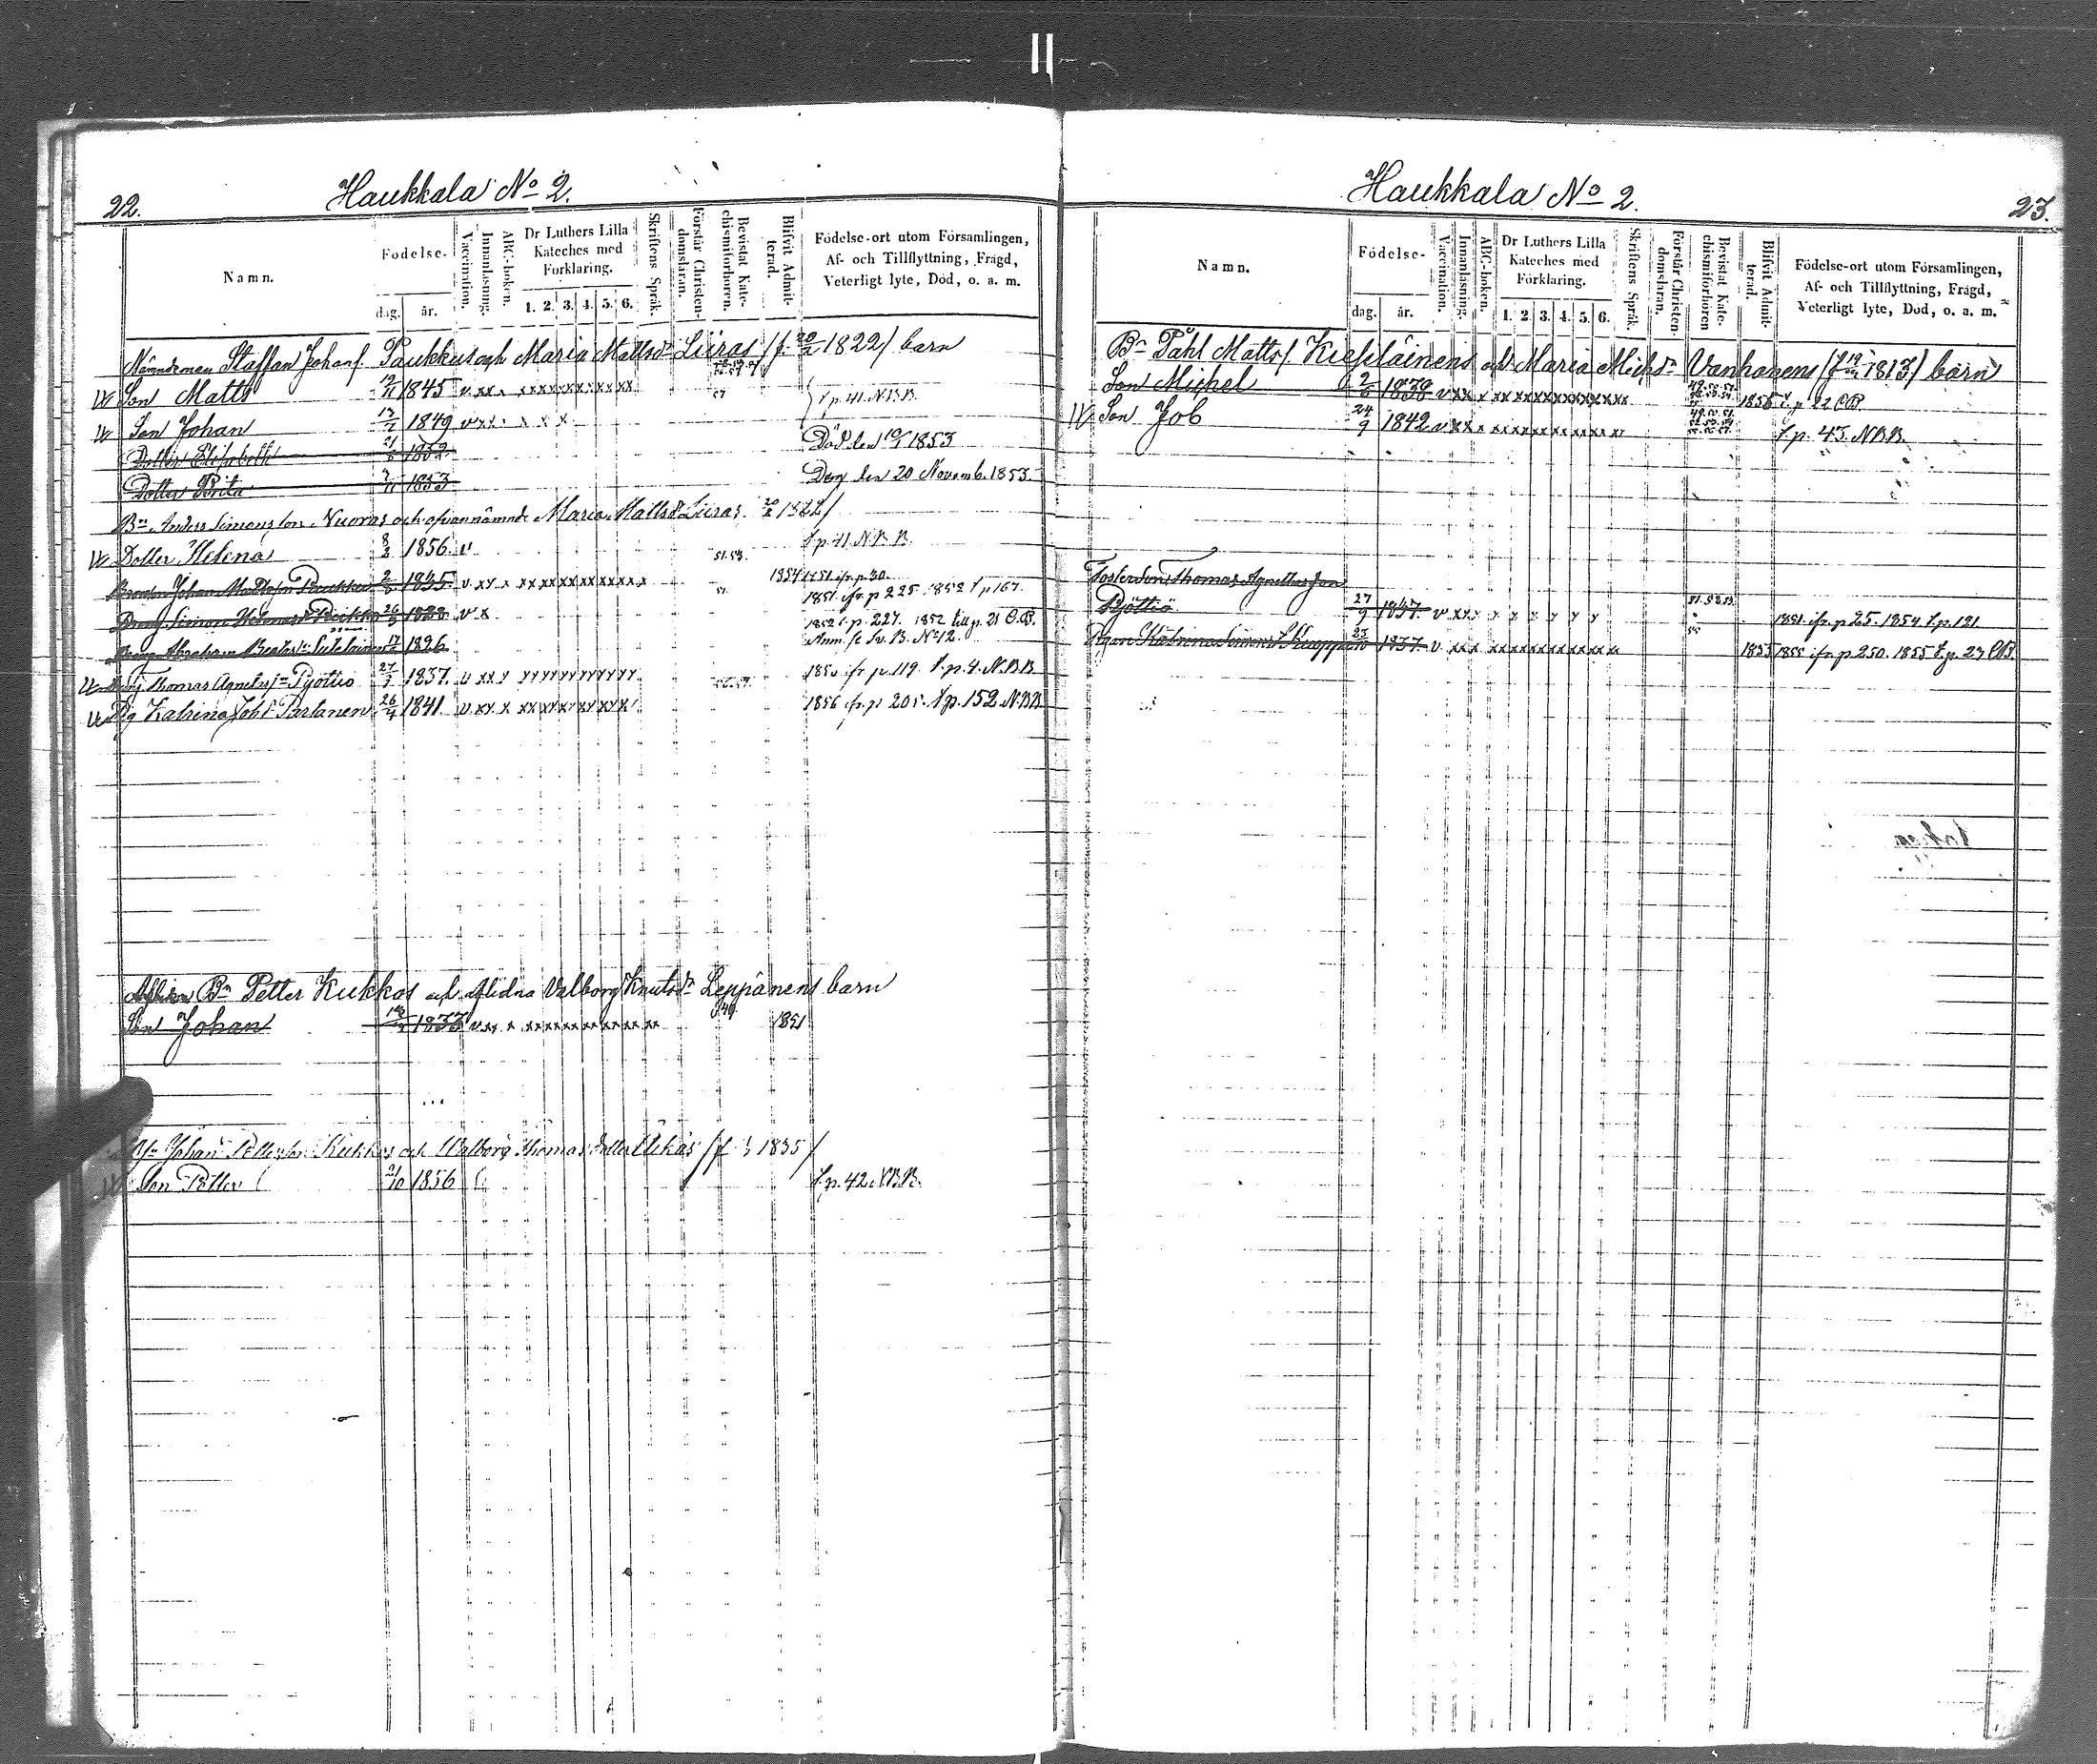 22.
Haukkala No 2.
Namn.
Födelse-
dag. år.
Vaccination.
Innanläsning.
ABC-boken.
Dr Luthers Lilla Kateches med Förklaring.
1. 2. 3. 4. 5. 6.
Skriftens Språk.
Förstår Christendomsläran.
Bevistat Katechismiförhören.
Blifvit Admitterad.
Födelse-ort utom Församlingen,
Af- och Tillflyttning, Frägd,
Veterligt lyte, Död, o. a. m.
Nämndeman Staffan Johans. Paukkus och Maria Mattsdr Liiras /f. 20/2 1822/ barn
Son Matts 2/11 1845 v xx x xxxxxxxxxxx 57 t. p. 41. N.B.B.
Son Johan 1849 v xx x x x
Dotter Elisabeth 1852 Död den 19/1 1853
Dotter Brita 1853 Dog den 20 Novemb. 1853.
Bn Anders Simonsson Nuoras och ofvannämnde Maria Mattsdr Liiras 20/2 1822/
Dotter Helena 8/3 1856 v t. p. 41. N.B.B.
Brorson Johan Mattsson Paukkus 1835 v xx x xxxxxxxxxxxx 51.53. 1854 1851 ifr. p. 30.
1851 ifr. p 225. 1852 t p 167.
Dreng Simon Helenas Peikko 26 1838 v x 51. 1852 t. p. 227. 1852 till p. 21 C.B.
Dreng Abraham Beatas Sutelainen 17 1826 Anm. se Sv. B. No 12.
Dreng Thomas Agnetas Pyöttiö 27/9 1837 v xx x xxxxxxxxxxx 1850 ifr p. 119. t. p. 4. N.B.B.
Pig. Katrina Johs dr Partanen 26/4 1841 v xx x xxxxxxxxxxx 1856 ifr. p 205. t p. 152 N.B.B.
Bn Petter Kukkos och Aflidna Valborg Knutsdr Leppänens barn
Son Johan 1833 v xx x xxxxxxxxxxxx 49 1851
Bn Johan Petersson Kukkos och Walborg Thomasdotter Ukas /f 1835/
Son Petter 21/10 1856 t. p. 42 N.B.B.
Haukkala No 2.
23.
Namn.
Födelse-
dag. år.
Vaccination.
Innanläsning.
ABC-boken.
Dr Luthers Lilla Kateches med Förklaring.
1. 2. 3. 4. 5. 6.
Skriftens Språk.
Förstår Christendomsläran.
Bevistat Katechismiförhören
Blifvit Admitterad.
Födelse-ort utom Församlingen,
Af- och Tillflyttning, Frägd,
Veterligt lyte, Död, o. a. m.
Bn Påhl Matts s. Kiesiläinens och Maria Michsdr Vanhanens (f 19 1813) barn
Son Michel 2/6 1838 v xx x xxxxxxxxxxxxx 1856 t. p 22 C.B.
Son Job 24/9 1842 v xx x xxxxxxxxxxxx t. p. 45. N.B.B.
Fosterson Thomas Agnetasson
Pyöttiö 27/9 1837. v xx x x x x x x x 51.52.53. 1851 ifr. p 25. 1854 t. p. 121
Pigan Katrina Simons d. Kauppinen 25 1837. v xx x xxxxxxxxxxx 55 1855 1855 ifr. p. 250. 1855 t. p. 23 C.B.